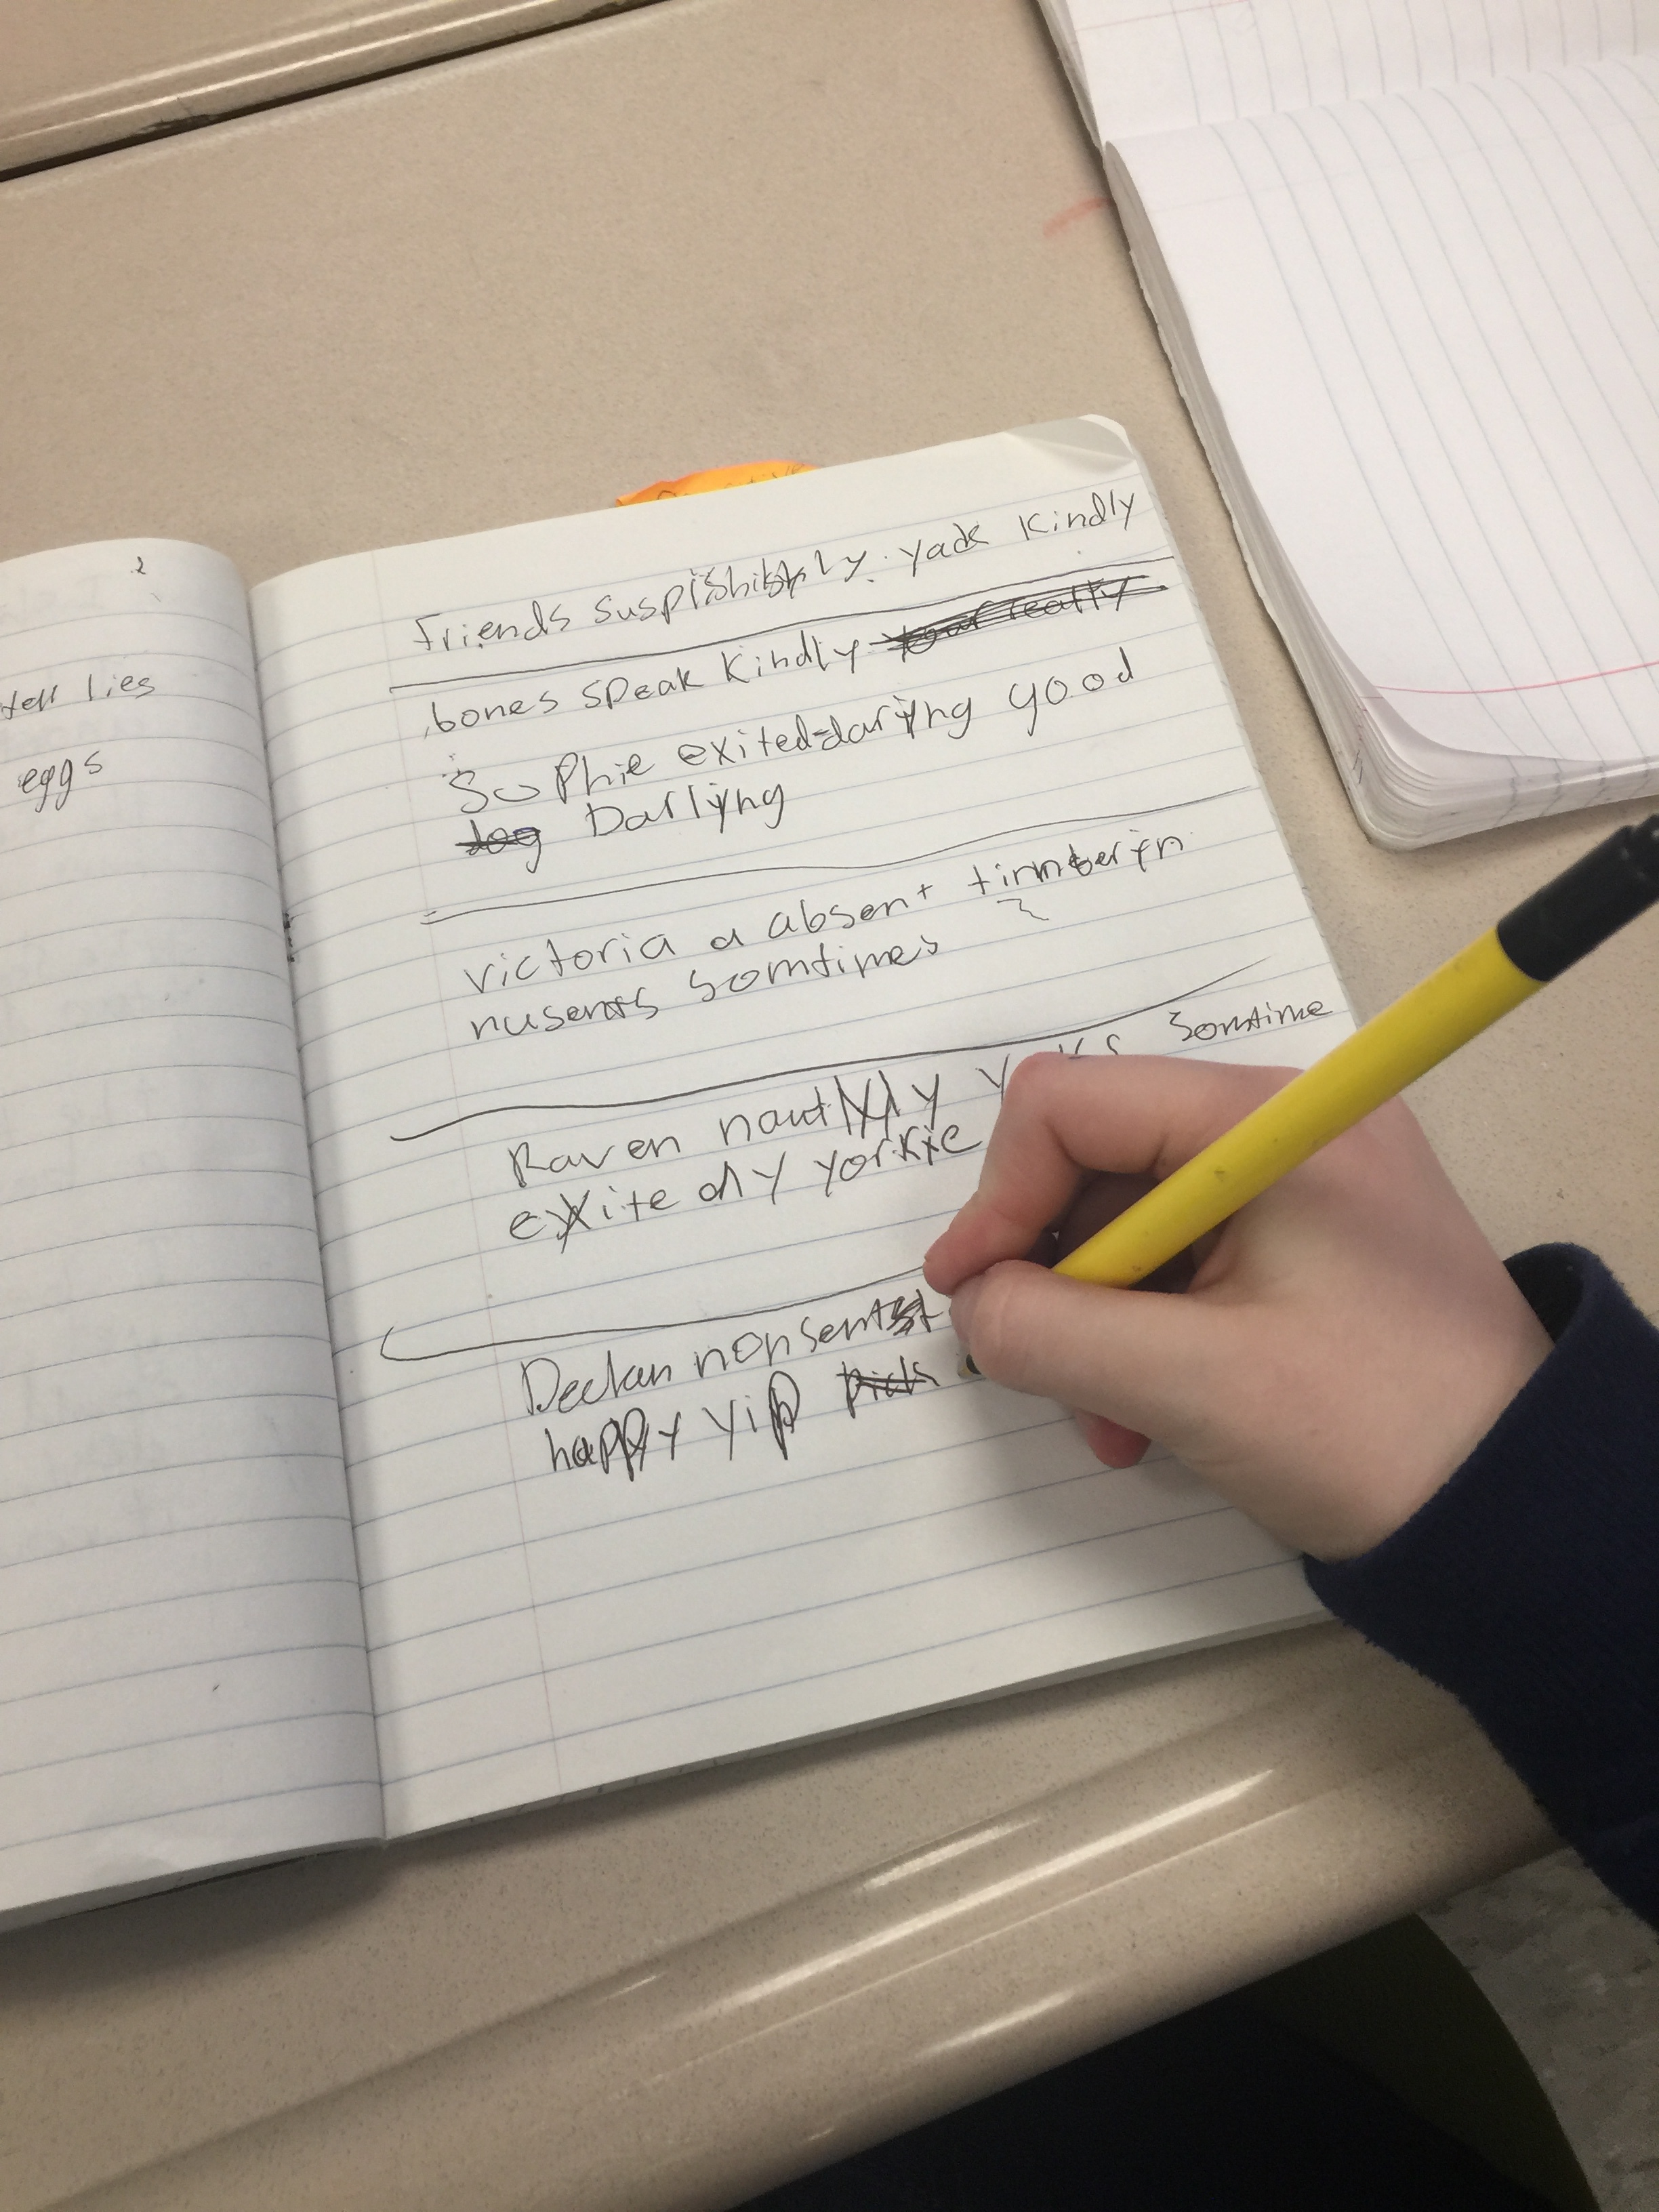 tell lies
eggs
Friends suspishisly. yack kindly
bones speak kindly your really
Sophie exited daring good
dog Darlyng
victoria a absent
nusents somtimes
Raven nautyly somtime
exitedly yorkie
Declan nonsents
happy yip